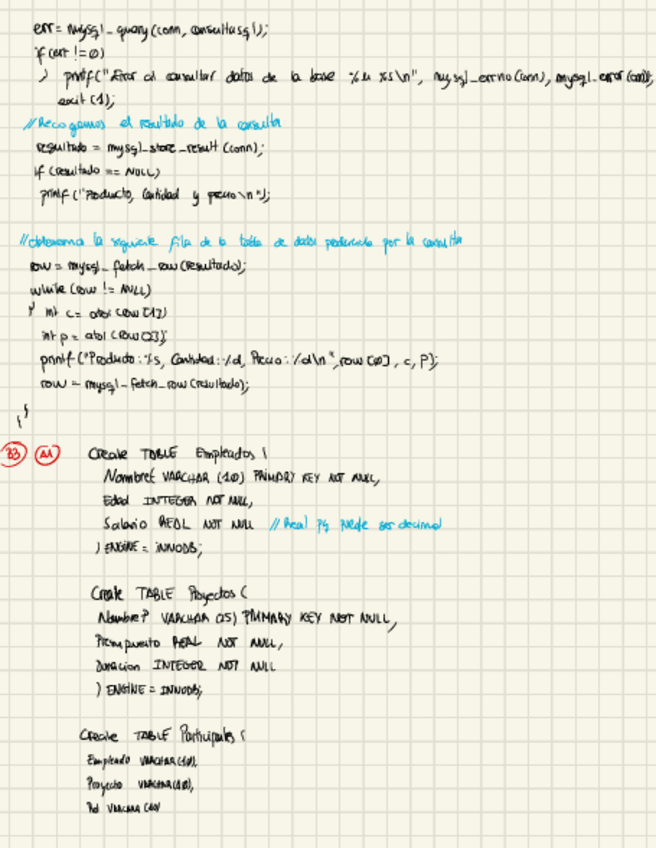 err = mysql_query (conn, consultasql);
if (err != 0)
} printf("Error al consultar datos de la base %u %s\n", mysql_errno(conn), mysql_error(conn));
exit (1);
//Recogemos el resultado de la consulta
resultado = mysql_store_result (conn);
if (resultado == NULL)
printf ("Producto, Cantidad y precio\n");
//obtenemos la siguiente fila de la tabla de datos por la consulta
row = mysql_fetch_row(resultado);
while (row != NULL)
int c = atoi (row [1])
int p = atoi (row [2]);
printf ("Producto: %s, Cantidad: %d, Precio: %d\n", row [0], c, p);
row = mysql_fetch_row(resultado);
}
33 A1 Create TABLE Empleados (
Nombre VARCHAR (10) PRIMARY KEY NOT NULL,
Edad INTEGER NOT NULL,
Salario REAL NOT NULL //Real pq puede ser decimal
) ENGINE = INNODB;
Create TABLE Proyectos (
Nombre? VARCHAR (25) PRIMARY KEY NOT NULL,
Presupuesto REAL NOT NULL,
Duracion INTEGER NOT NULL
) ENGINE = INNODB;
Create TABLE Participales (
Empleado VARCHAR(10),
Proyecto VARCHAR(10),
VARCHAR (10)